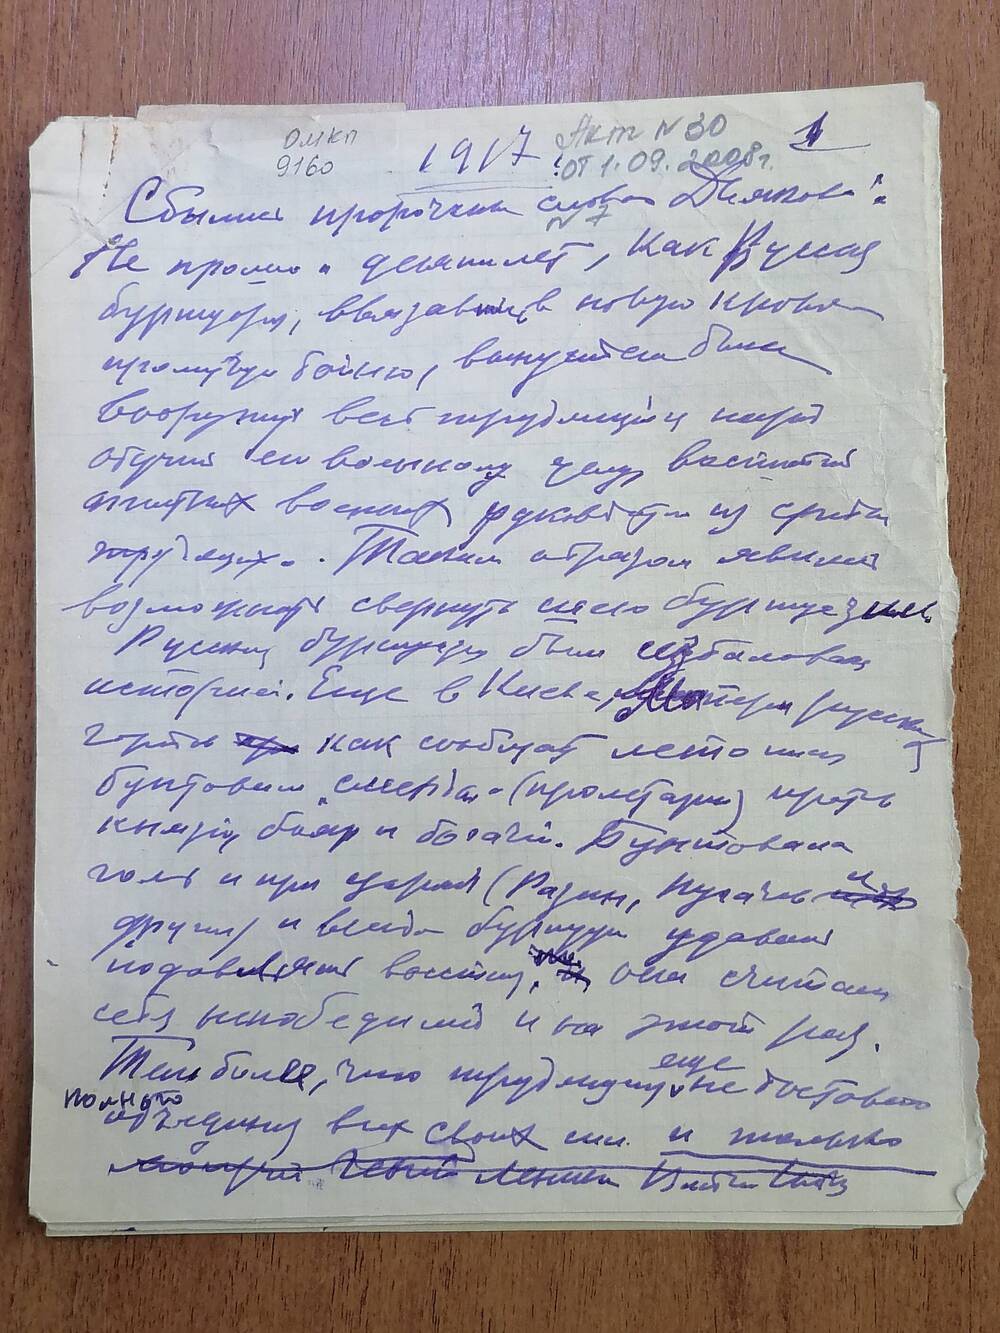 ОМКП
9160
1917
Акт N 30
от 1.09.2008г.
N 7
1
Сбылись пророческие слова Дьякова:
Не прошло и десяти лет, как Русская
буржуазия, ввязавшись в новую крово
бойню, вынуждена была
вооружить весь трудящийся народ
обучить его военному делу, воспитать
военных из среды
. Таким образом явилась
возможность свергнуть иго буржуазии.
Русская буржуазия была избалована
историей. Еще в Киеве, Матери русских
городов как сообщает летопись
бунтовали "смерды" (пролетарии) против
князей, бояр и богачей. Бунтовала
голь и при царях (Разин, Пугачев и
другие) и всегда буржуазии удавалось
подавлять восстания, она считала
себя непобедимой и на этот раз.
Тем более, что трудящимся еще не доставало
полного
объединения всех своих сил и только
Ленин